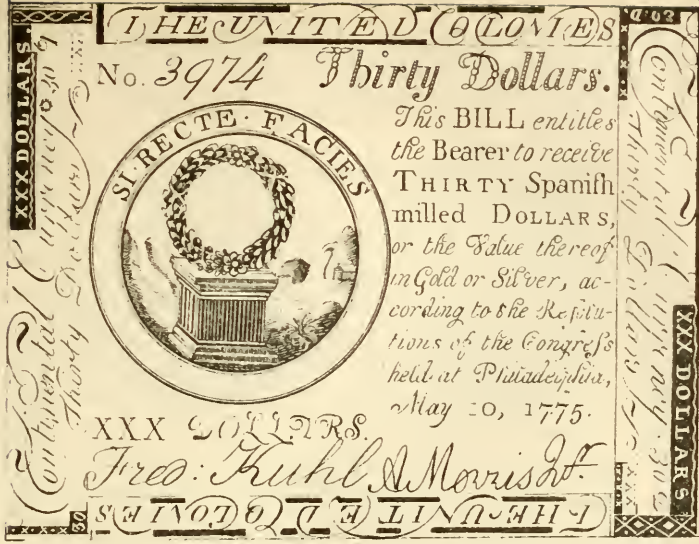 THE UNITED COLONIES
No. 3974 Thirty Dollars.
SI · RECTE · FACIES
This BILL entitles
the Bearer to receive
THIRTY Spaniſh
milled DOLLARS,
or the Value thereof
in Gold or Silver, ac-
cording to the Reſolu-
tions of the Congreſs
held at Philadelphia,
May 10, 1775.
XXX DOLLARS.
Fred: Kuhl A Morris Jr.
THE UNITED COLONIES
XXX DOLLARS.
Continental Currency 30
Thirty Dollars
30.D.
Continental Currency 30
Thirty Dollars
XXX DOLLARS
30